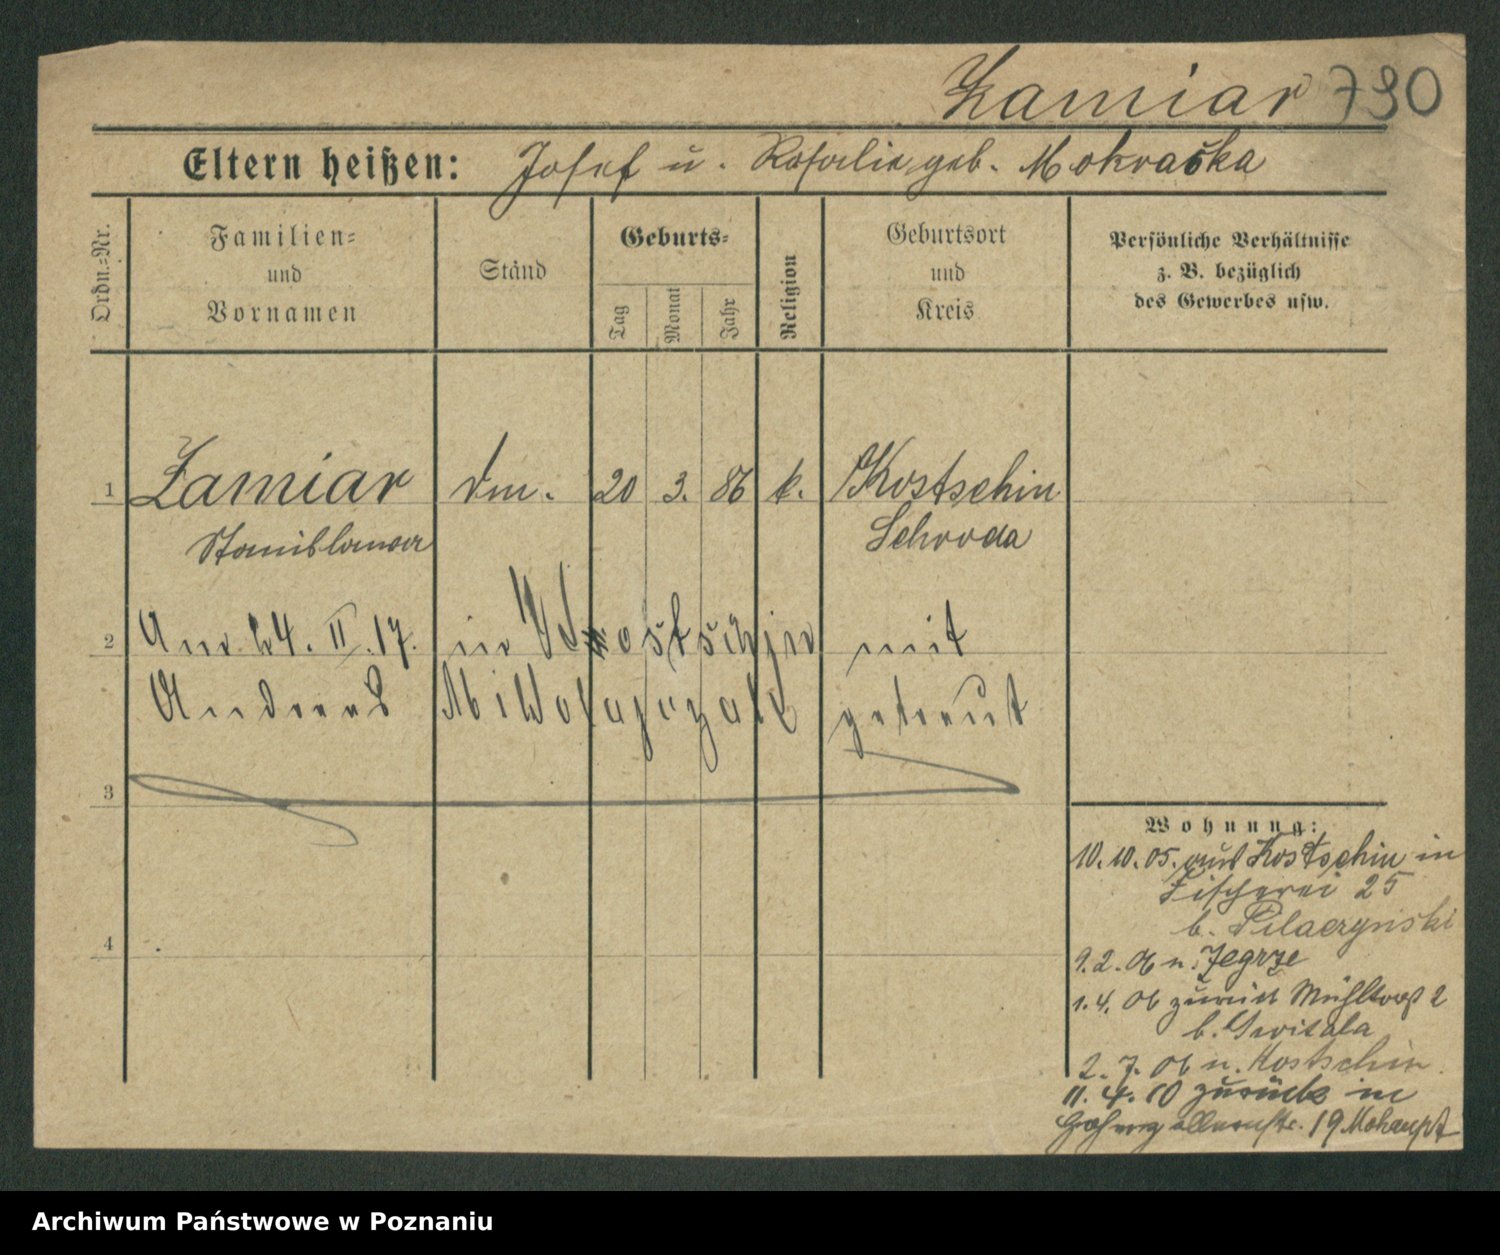 Zamiar 790
Eltern heißen: Josef u. Rosalie geb. Mokraska
Ordn.-Nr.
Familien-
und
Vornamen
Stand
Geburts-
Tag
Monat
Jahr
Religion
Geburtsort
und
Kreis
Persönliche Verhältnisse
z. B. bezüglich
des Gewerbes usw.
1 Zamiar dm. 20 3. 86 k. Kostschin
Stanislawa Schroda
2 Am 24. II. 17. in Kostschin mit
Andreas Mikolajczak getraut
3
Wohnung:
10.10.05. aus Kostschin in
Fischerei 25
b. Pilaczynski
4
9.2.06 n. Jegrze
1.4.06 zurück Mühlstraß 2
b.
2.7.06 n. Kostschin
11.4.10 zurück in
19 Mohaupt
Archiwum Państwowe w Poznaniu